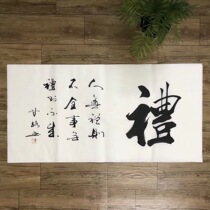 禮
人無禮則
不生事無
禮則不成